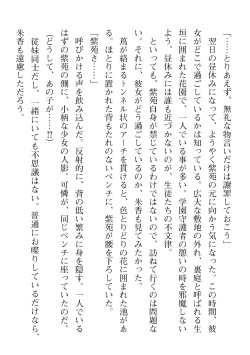 「……とりあえず、無礼な物言いだけは謝罪しておこう」
　翌日の昼休みになって、ようやく紫苑の元に向かう気になった。この時間、彼
女がどこで過ごしているかは知っている。広大な敷地の外れ、裏薔と呼ばれる生
垣に囲まれた花園で、一人でいる事が多い。学園守護者の憩いの時を邪魔しない
よう、昼休みには誰も近づかないのが、生徒たちの不文律。
　といっても、紫苑自身が禁じているわけではないので、訪ねて行くのは問題な
い。それに、彼女がどう過ごしているのか、朱香も見てみたかった。
　蔦が絡まるトンネル状のアーチを貫けると、色とりどりの花に囲まれた池があ
る。ほとりに置かれた背もたれのないベンチに、紫苑が腰を下ろしていた。
「紫苑さ……」
　呼びかける声を飲み込んだ。反射的に、背の低い繁みに身を隠す。一人でいる
はずの紫苑の側に、小柄な少女の人影。可憐が、同じベンチに座っていたのだ。
（どうして、あの子が……!?）
　従妹同士だし、一緒にいても不思議はない。普通にお喋りしているだけなら、
朱香も遠慮しただろう。